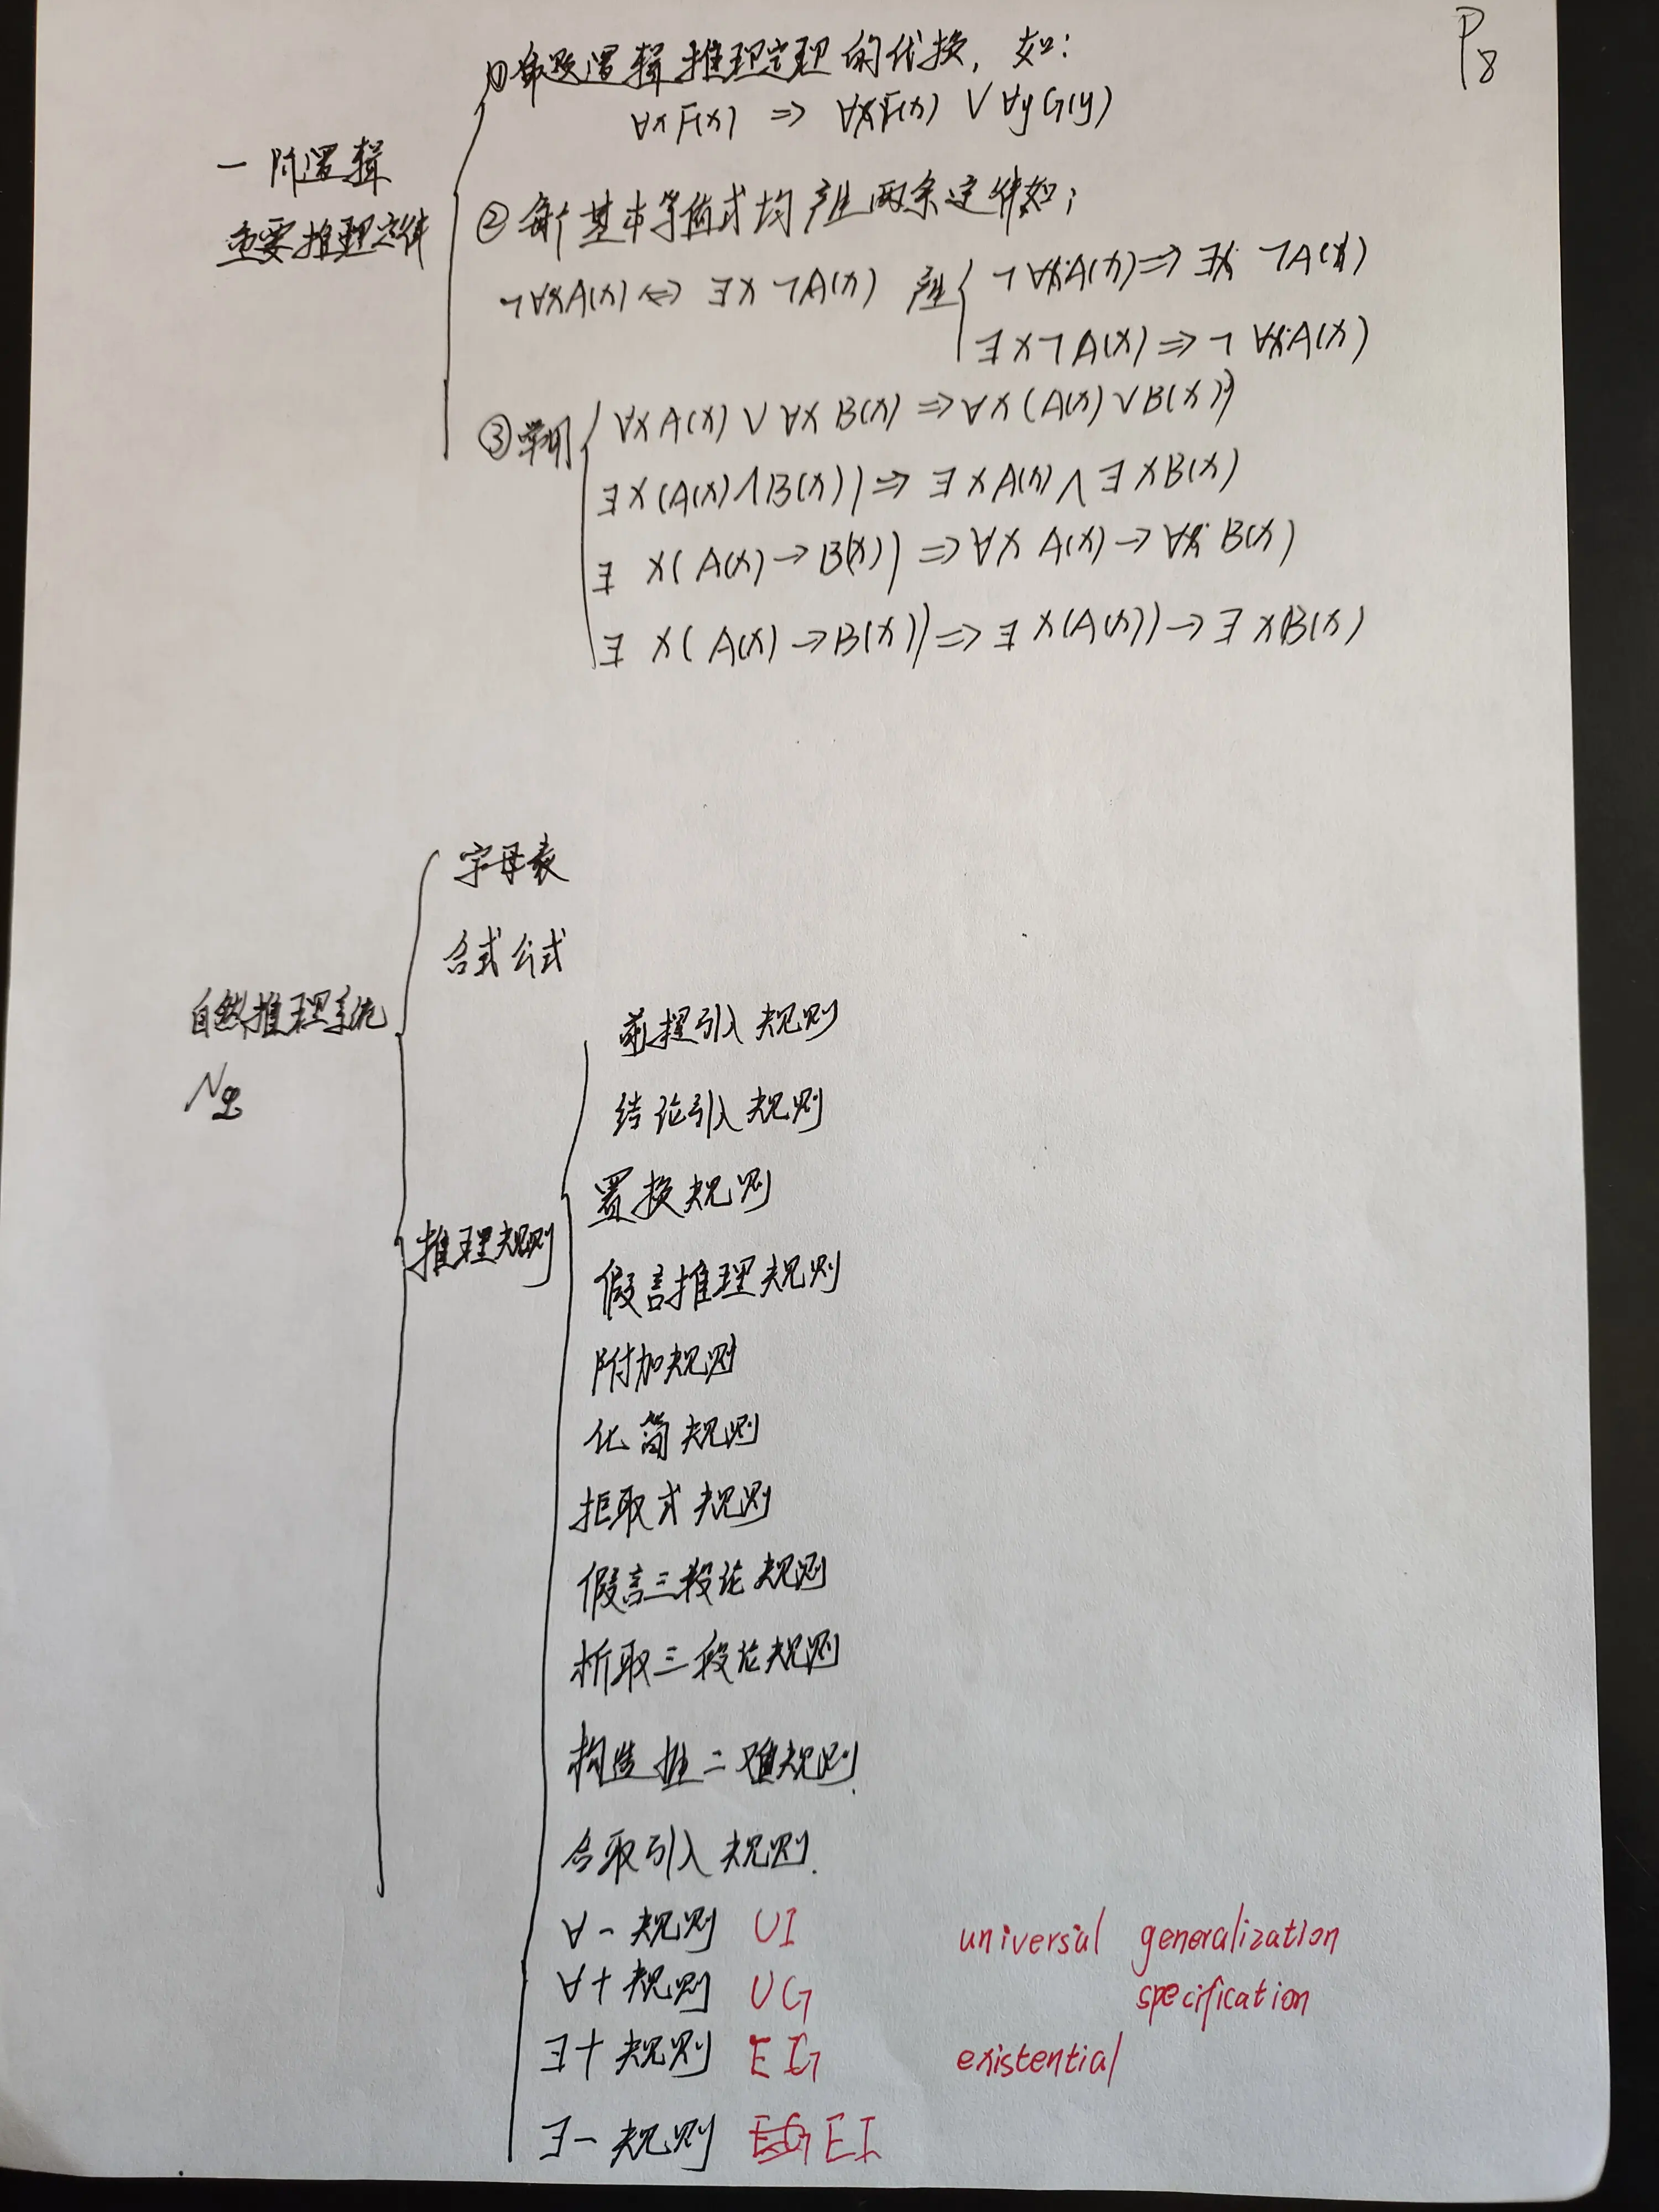 P8
①命题逻辑推理定理的代换，如：
∀xF(x) ⇒ ∀xF(x) ∨ ∀yG(y)
一阶逻辑
重要推理定律
②每个基本等值式均产生两条定律如；
¬∀xA(x) ⇔ ∃x¬A(x) 产生
¬∀xA(x) ⇒ ∃x ¬A(x)
∃x¬A(x) ⇒ ¬∀xA(x)
③常用
∀xA(x) ∨ ∀xB(x) ⇒ ∀x(A(x)∨B(x))
∃x(A(x)∧B(x)) ⇒ ∃xA(x) ∧ ∃xB(x)
∃x(A(x)→B(x)) ⇒ ∀xA(x) → ∀xB(x)
∃x(A(x)→B(x)) ⇒ ∃x(A(x)) → ∃xB(x)
自然推理系统
N𝓛
字母表
合式公式
推理规则
前提引入规则
结论引入规则
置换规则
假言推理规则
附加规则
化简规则
拒取式规则
假言三段论规则
析取三段论规则
构造性二难规则.
合取引入规则.
∀-规则 UI universal generalization
∀+规则 UG specification
∃+规则 EG existential
∃-规则 EI